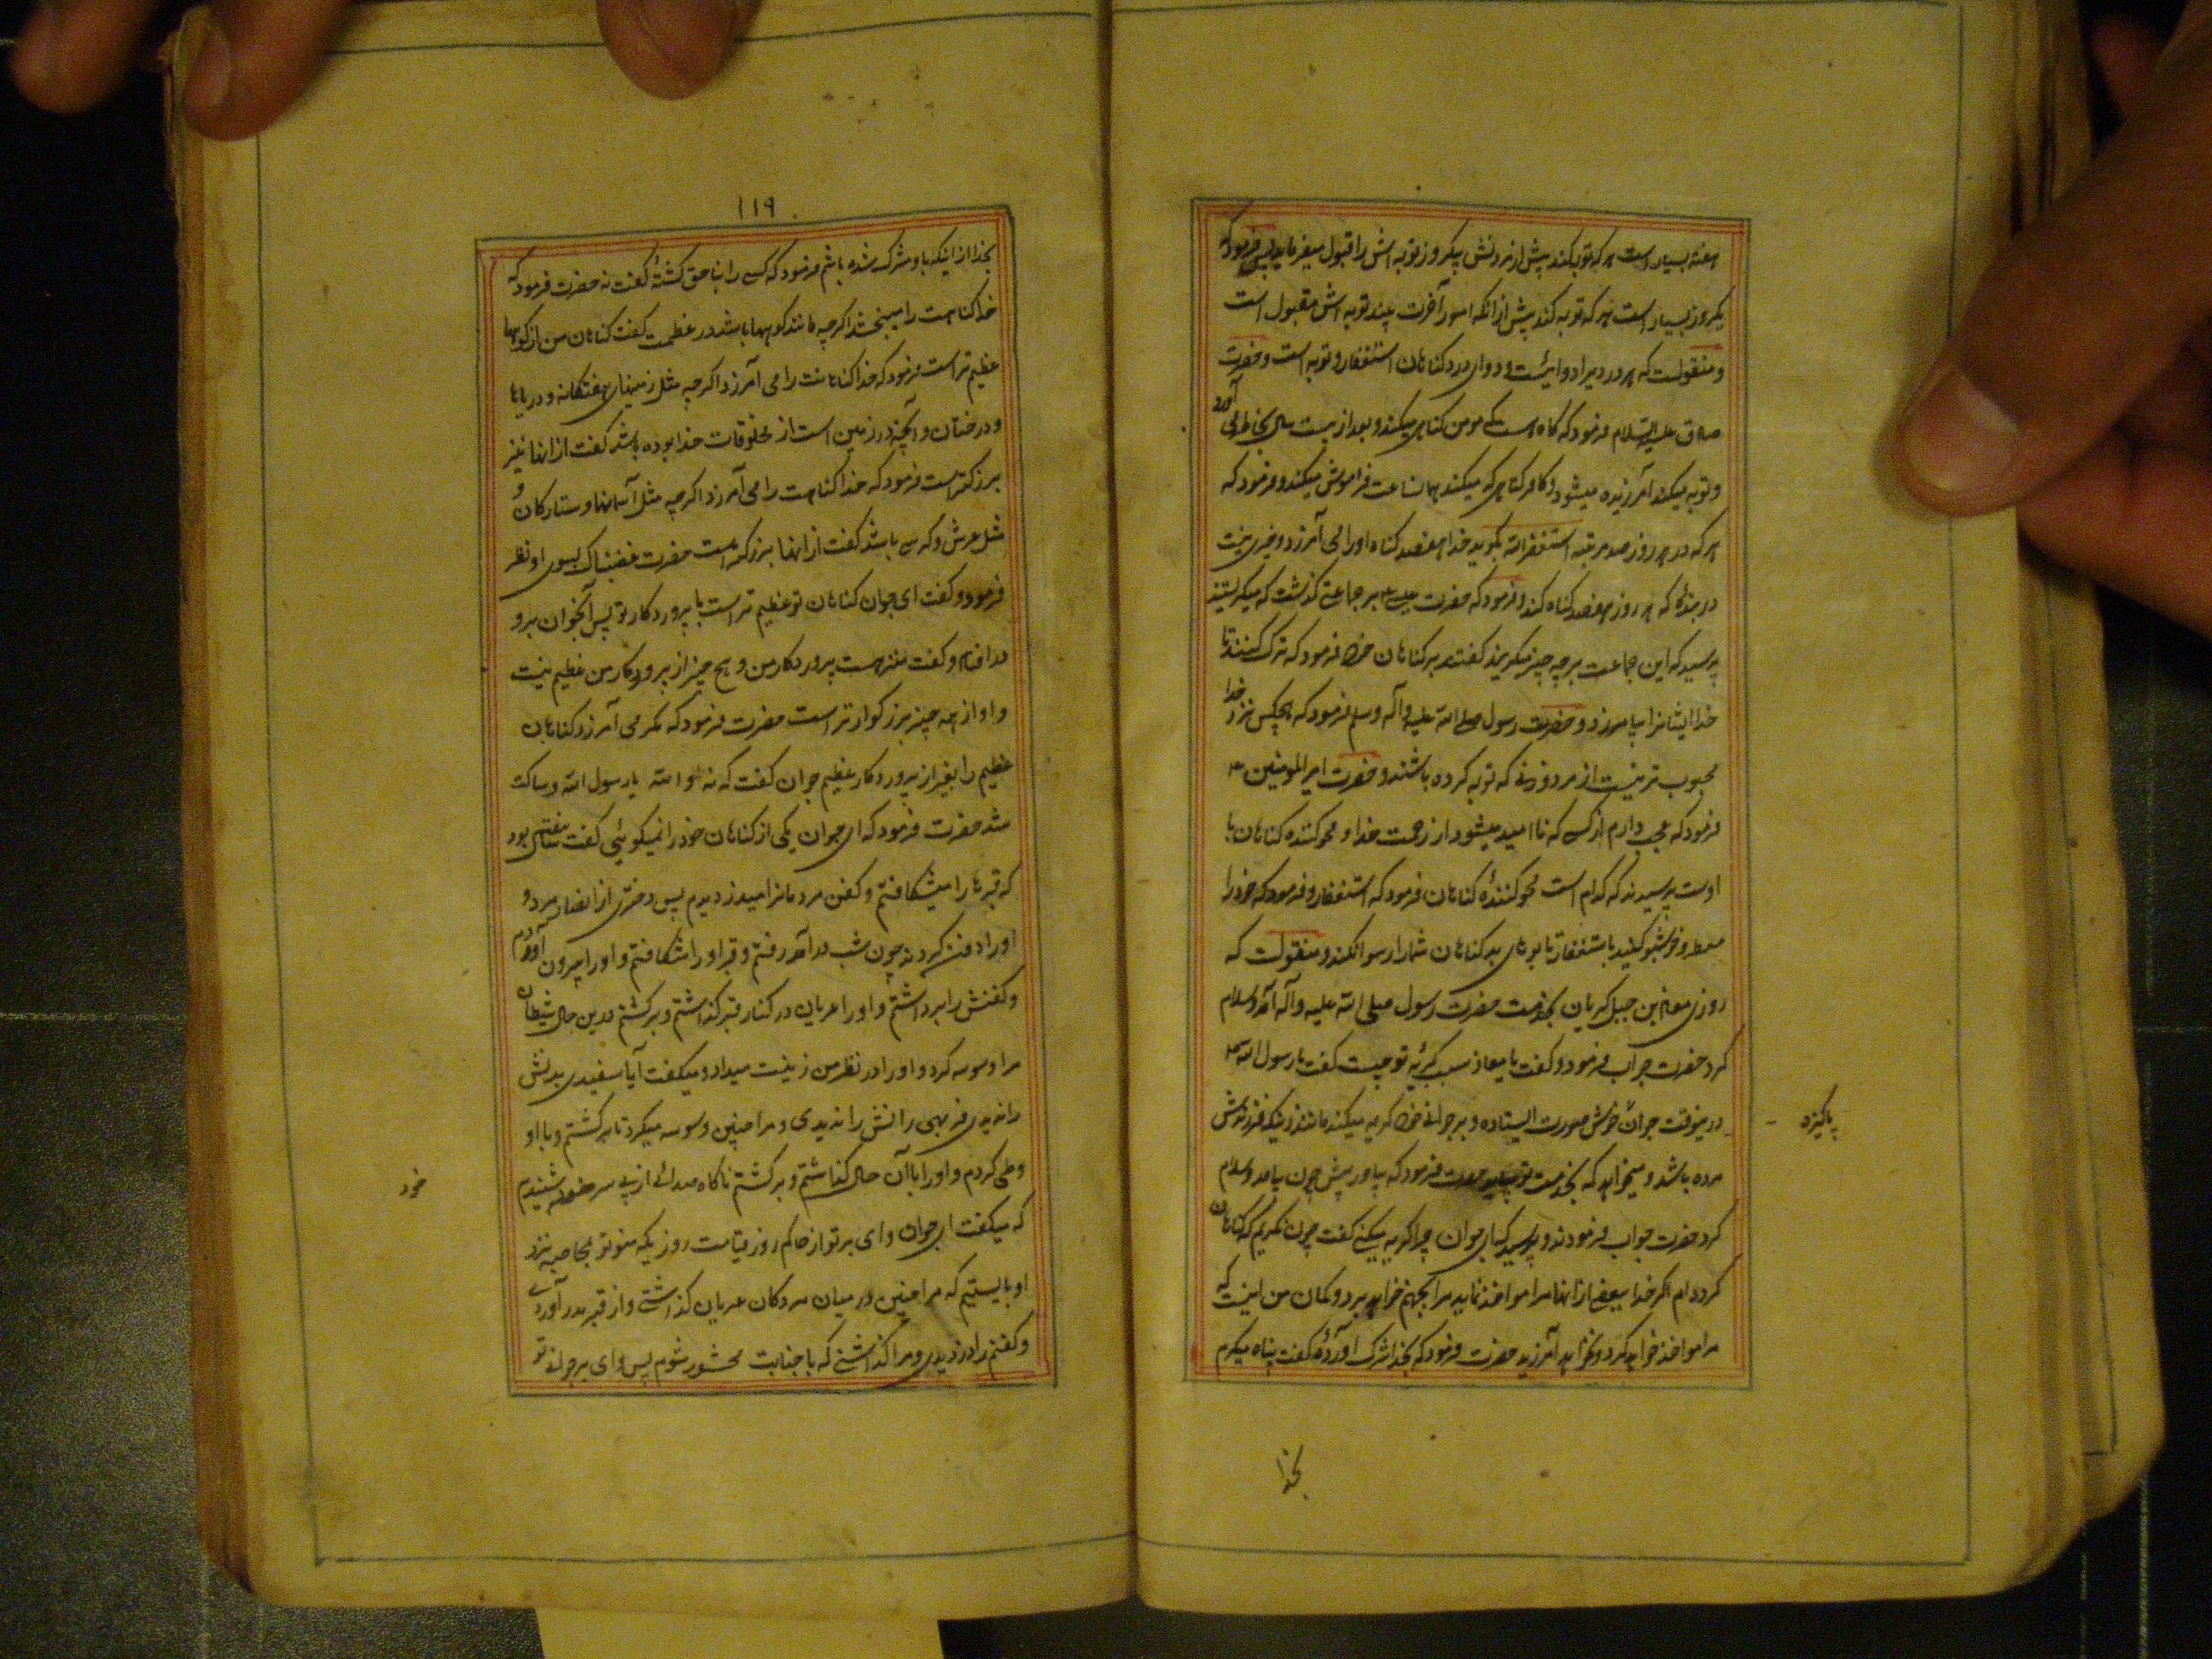 هفته بسیار است هر که توبه کند پیش از مردنش بیکروز توبه اش را قبول میفرماید پس فرمود که
یکروز بسیار است هر که توبه کند پیش از آنکه امور آخرت بیند توبه اش مقبول است
و منقولست که هر دردیرا دوائیست و دوای درد کناهان استغفار و توبه است و حضرت
صادق علیه السلام فرمود که کاه هست که مومن کناهی میکند و بعد از بیست سال بخاطر می آورد
و توبه میکند آمرزیده میشود و کافر کناهی که میکند همان ساعت فراموش میکند و فرمود که
هر که در هر روز صد مرتبه استغفر الله بکوید خدا هفتصد کناه او را می آمرزد و خیری نیست
در بندهٔ که هر روز هفتصد کناه کند و فرمود که حضرت عیسی ۴ بر جماعتی کذشت که میکریستند
پرسید که این جماعت بر چه چیز میکریند کفتند بر کناهان خود فرمود که ترک کنند تا
خدا ایشانرا بیامرزد و حضرت رسول صلی الله علیه و آله وسلم فرمود که هیچکس نزد خدا
محبوب تر نیست از مرد و زنی که توبه کرده باشند و حضرت امیر المومنین ۴
فرمود که عجب دارم از کسی که نا امید میشود از رحمت خدا و محو کننده کناهان با
اوست پرسیدند که کدام است محو کنندهٔ کناهان فرمود که استغفار و فرمود که خود را
معطر و خوشبو کنید باستغفار تا بوهای بد کناهان شما را رسوا نکند و منقولست که
روزی معاذ بن جبل کریان بخدمت حضرت رسول صلی الله علیه و آله آمد و سلام
کرد حضرت جواب فرمود و کفت یا معاذ سبب کریهٔ تو چیست کفت یا رسول الله ص
درینوقت جوان خوش صورت ایستاده و بر جوانی خود کریه میکند مانند زنیکه فرزندش
پاکیزه
مرده باشد و میخواهد که بخدمت تو بیاید حضرت فرمود که بیاور پیش چون بیامد و سلام
کرد حضرت جواب فرمودند و پرسید که ای جوان چرا کریه میکنی کفت چون نکریم که کناهان
کرده ام اکر خدا ببعضی از انها مرا مواخذه نماید مرا بجهنم خواهد برد و کمان من اینست که
مرا مواخذه خواهد کرد و نخواهد آمرزید حضرت فرمود که بخدا شرک آوردهٔ کفت پناه میبرم
بخدا
۱۱۹
بخدا از اینکه باو مشرک شده باشم فرمود که کسی را بناحق کشتهٔ کفت نه حضرت فرمود که
خدا کناهت را میبخشد اکر چه مانند کوهها باشد در عظمت کفت کناهان من از کوهها
عظیم تر است فرمود که خدا کناهانت را می آمرزد اکر چه مثل زمینهای هفتکانه و دریاها
و درختان و آنچه در زمین است از مخلوقات خدا بوده باشد کفت از انها نیز
بزرکتر است فرمود که خدا کناهت را می آمرزد اکر چه مثل آسمانها و ستارکان و
مثل عرش و کرسی باشد کفت از انها بزرکتر است حضرت غضبناک بسوی او نظر
فرمود و کفت ای جوان کناهان تو عظیم تر است یا پروردکار تو پس آنجوان برو
در افتاد و کفت منزهست پروردکار من و هیچ چیز از پروردکار من عظیم نیست
و او از همه چیز بزرکوارتر است حضرت فرمود که مکر می آمرزد کناهان
عظیم را بغیر از پروردکار عظیم جوان کفت که نه والله یا رسول الله و ساکت
شد حضرت فرمود که ای جوان یکی از کناهان خود را نمیکوئی کفت هفت سال بود
که قبرها را میشکافتم و کفن مردمانرا میدزدیدم پس دختری از انصار مرد و
او را دفنش کردند چون شب در آمد رفتم و قبر او را شکافتم و او را بیرون آوردم
و کفنش را برداشتم و او را عریان در کنار قبر کذاشتم و برکشتم درین حال شیطان
مرا وسوسه کرد و او را در نظر من زینت میداد و میکفت آیا سفیدی بدنش
را ندیدی فربهی رانش را ندیدی و مرا چنین وسوسه میکرد تا برکشتم و با او
وطی کردم و او را با آن حال کذاشتم و برکشتم ناکاه صدائی از پی سر خود شنیدم
خود
که میکفت ای جوان وای بر تو از حاکم روز قیامت روزیکه من و تو بمخاصمه نزد
او بایستیم که مرا چنین در میان مردکان عریان کذاشتی و از قبر بدر آوردی
و کفنم را دزدیدی و مرا کذاشتی که با جنابت محشور شوم پس وای بر جوانی تو